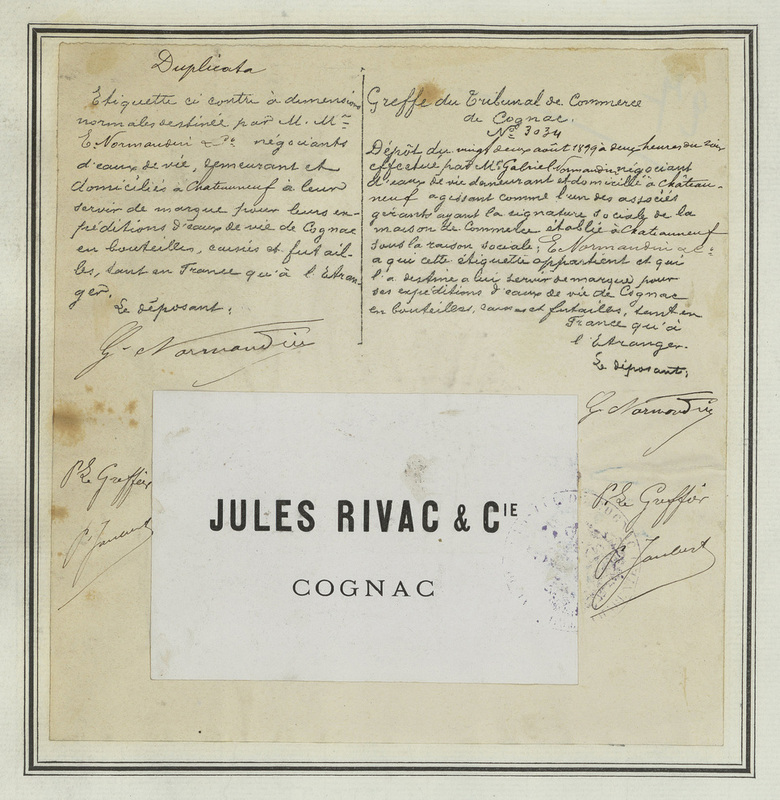 Duplicata
Etiquette ci contre à dimensions
normales destinée par M. M.rs
E. Normandin & Cie négociants
d'eaux de vie, demeurant et
domiciliés à Chateauneuf à leur
servir de marque pour leurs ex-
péditions d'eaux de vie de Cognac
en bouteilles, caisses et futail-
les, tant en France qu'à l'Etran-
ger.
Le déposant,
G. Normandin
Greffe du Tribunal de Commerce
de Cognac.
No 3034
Dépôt du vingt deux août 1899 à deux heures du soir
effectué par Mr Gabriel Normandin négociant
d'eaux de vie demeurant et domicilié à Château-
neuf agissant comme l'un des associés
gérants ayant la signature sociale de la
maison de Commerce établie à Chateauneuf
sous la raison sociale; E. Normandin & Cie
a qui cette étiquette appartient et qui
l'a destine a lui servir de marque pour
ses expéditions d'eaux de vie de Cognac
en bouteilles, caisses et futailles, tant en
France qu'à
l'Etranger.
Le déposant,
G. Normandin
Pr Le Greffier
P. Joubert
Pr Le Greffier
P. Joubert
JULES RIVAC & CIE
COGNAC